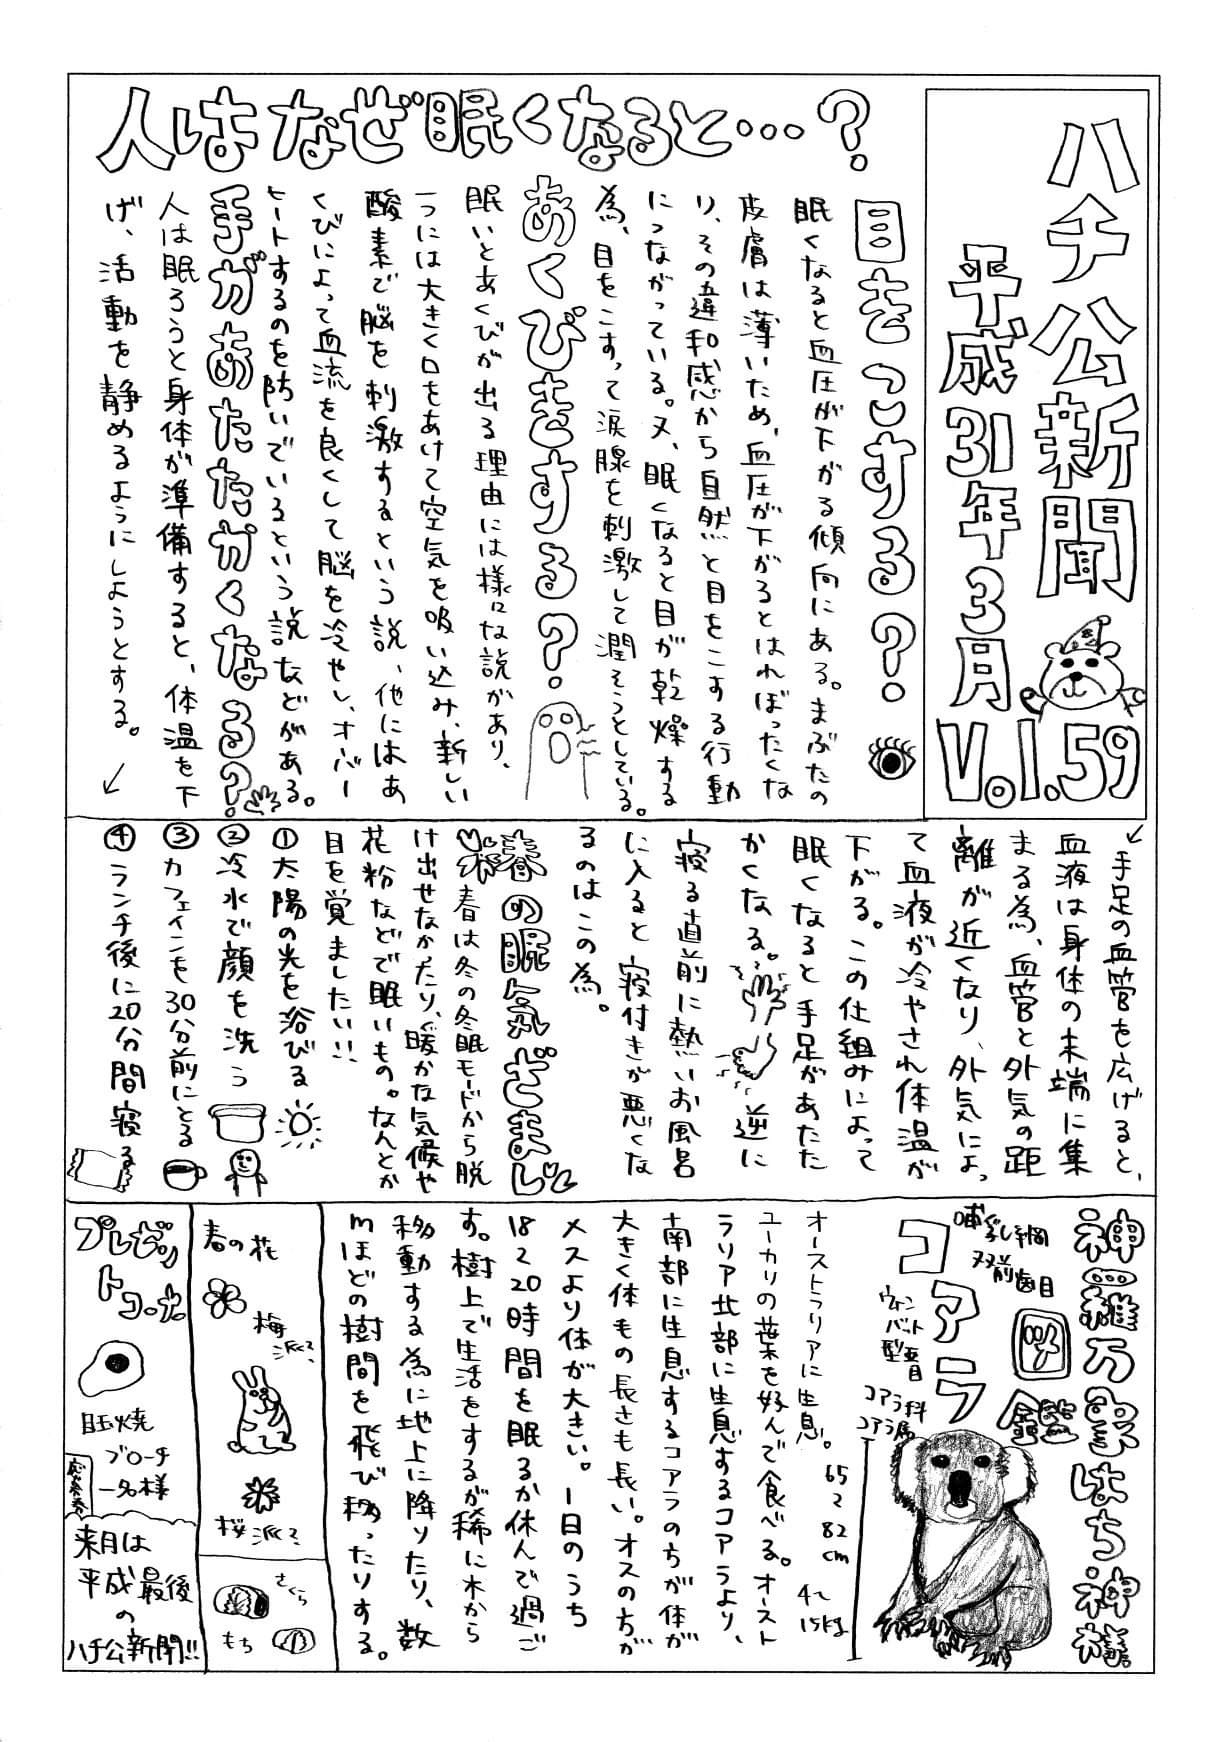 ハチ公新聞
平成31年3月
Vol.59
人はなぜ眠くなると…?
目をこする?
眠くなると血圧が下がる傾向にある。まぶたの
皮膚は薄いため、血圧が下がるとはれぼったくな
り、その違和感から自然と目をこする行動
につながっている。又、眠くなると目が乾燥する
為、目をこすって涙腺を刺激して潤そうとしている。
あくびをする?
眠いとあくびが出る理由には様々な説があり、
一つには大きく口をあけて空気を吸い込み、新しい
酸素で脳を刺激するという説、他にはあ
くびによって血流を良くして脳を冷やし、オーバー
ヒートするのを防いでいるという説などがある。
手があたたかくなる?
人は眠ろうと身体が準備すると、体温を下
げ、活動を静めるようにしようとする。
手足の血管を広げると、
血液は身体の末端に集
まる為、血管と外気の距
離が近くなり、外気によっ
て血液が冷やされ体温が
下がる。この仕組みによって
眠くなると手足があたた
かくなる。逆に
寝る直前に熱いお風呂
に入ると寝付きが悪くな
るのはこの為。
春の眠気ざまし
春は冬の冬眠モードから脱
け出せなかったり、暖かな気候や
花粉などで眠いもの。なんとか
目を覚ましたい!!
①太陽の光を浴びる
②冷水で顔を洗う
③カフェインを30分前にとる
④ランチ後に20分間寝る
神…羅万象はち神様
図鑑
哺乳綱
双前歯目
コアラ
ウォンバット型亜目
コアラ科
コアラ属
65~82cm
4~15kg
オーストラリアに生息。
ユーカリの葉を好んで食べる。オースト
ラリア北部に生息するコアラより、
南部に生息するコアラの方が体が
大きく体毛の長さも長い。オスの方が
メスより体が大きい。1日のうち
18~20時間を眠るか休んで過ご
す。樹上で生活をするが稀に木から
移動する為に地上に降りたり、数
mほどの樹間を飛び移ったりする。
春の花
梅派?
桜派?
さくら
もち
プレゼン
トコーナー
目玉焼
ブローチ
一名様
来月は
平成最後
の
ハチ公新聞!!